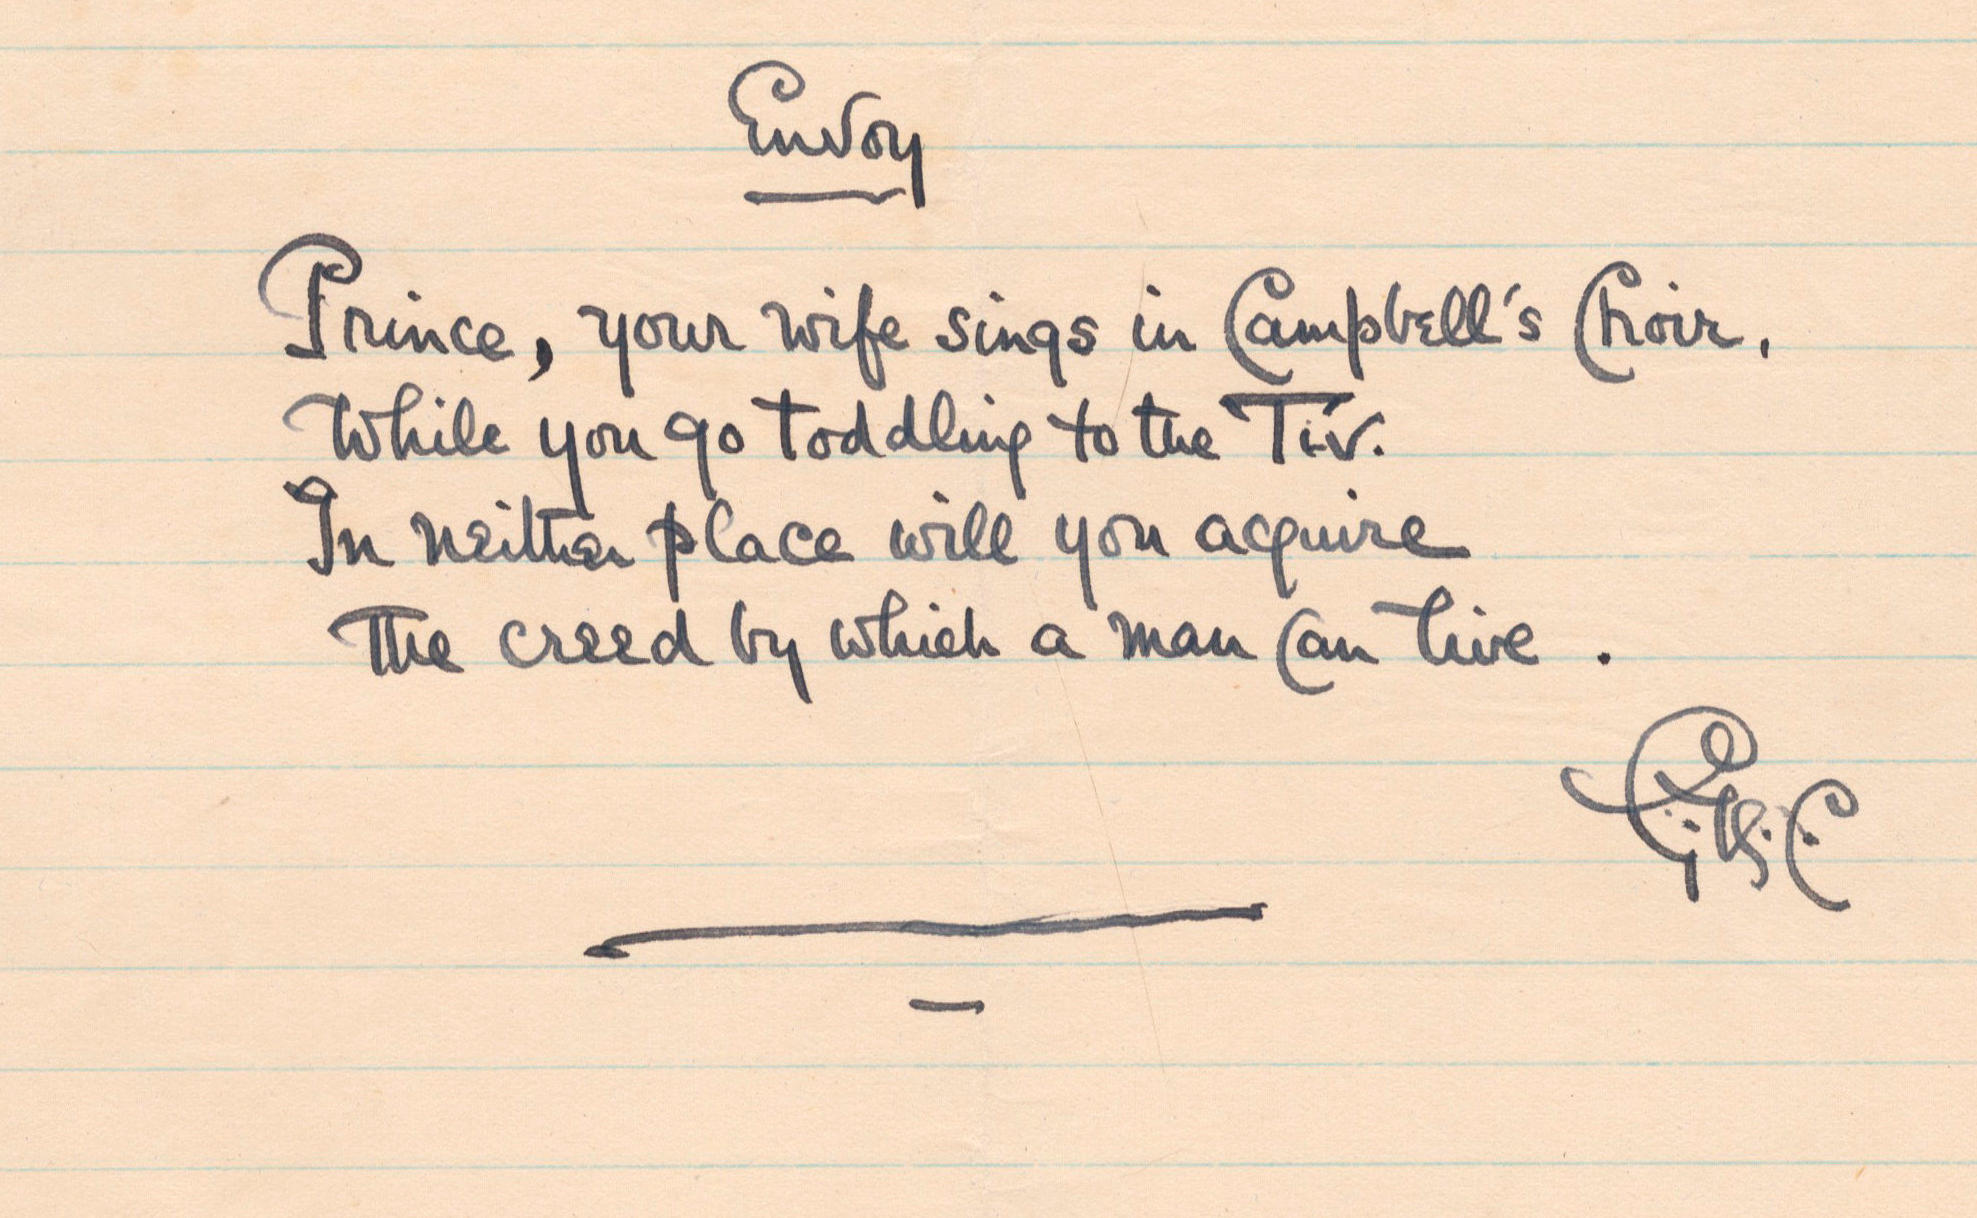 Envoy
Prince, your wife sings in Campbell's Choir,
While you go toddling to the Tiv.
In neither place will you acquire
The creed by which a man can live.
G.K.C.